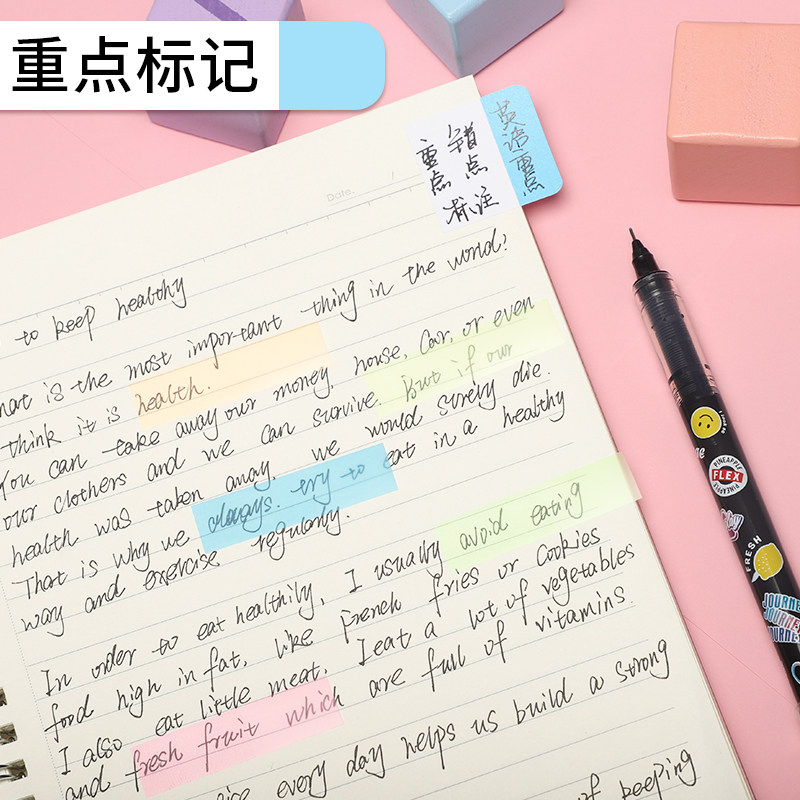 重点标记
重点
错点
标注
英语重点
Date.
to keep healthy
hat is the most important thing in the world?
think it is health.
You can take away our money, house, car, or even
our clothers and we can survive. But if our
health was taken away. we would surely die.
That is why we always. try to eat in a healthy
way and exercise regularly.
In order to eat healthily, I usually avoid eating
food high in fat, like french fries or cookies
I also eat little meat. I eat a lot of vegetables
and fresh fruit which are full of vitamins.
ise every day helps us build a strong
of keeping
PINEAPPLE
FLEX
PINEAPPLE
FRESH
JOURNE
JOURNE
JOURNE